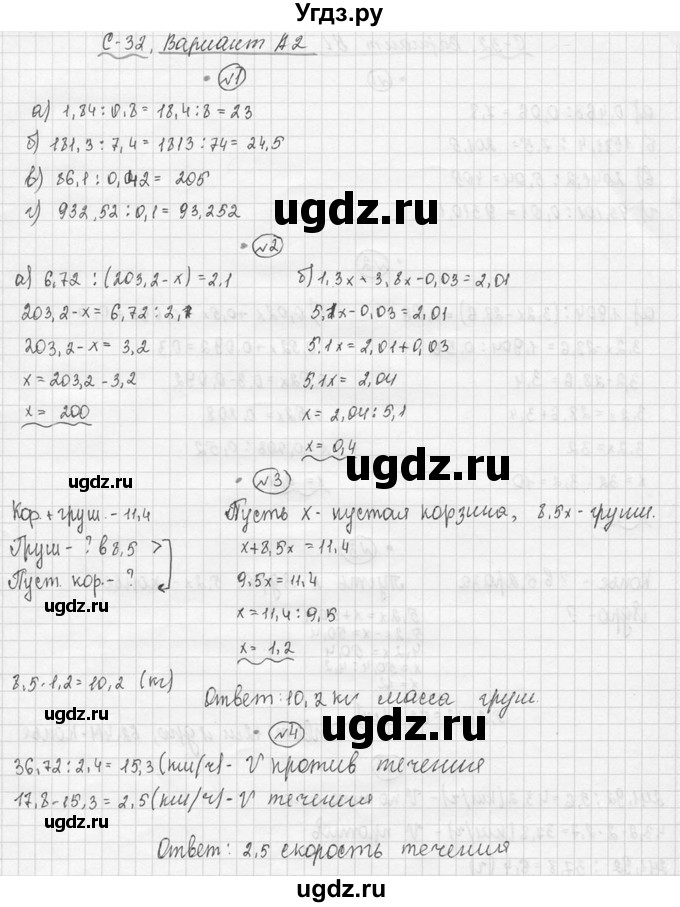 Угдз.ру
С-32, Вариант А2
№1
а) 1,84 : 0,8 = 18,4 : 8 = 23
б) 181,3 : 7,4 = 1813 : 74 = 24,5
в) 86,1 : 0,42 = 205
г) 932,52 : 0,1 = 93,252
ugdz.ru
№2
а) 6,72 : (203,2 - х) = 2,1
203,2 - х = 6,72 : 2,1
203,2 - х = 3,2
х = 203,2 - 3,2
х = 200
б) 1,3х + 3,8х - 0,03 = 2,01
5,1х - 0,03 = 2,01
5,1х = 2,01 + 0,03
5,1х = 2,04
х = 2,04 : 5,1
х = 0,4
ugdz.ru
ugdz.ru
№3
Кор. + груш. - 11,4
Груш - ? в 8,5 >
Пуст. кор. - ?
ugdz.ru
Пусть х - пустая корзина, 8,5х - груши.
х + 8,5х = 11,4
9,5х = 11,4
х = 11,4 : 9,5
х = 1,2
ugdz.ru
8,5 · 1,2 = 10,2 (кг)
Ответ: 10,2 кг масса груш.
ugdz.ru
ugdz.ru
№4
36,72 : 2,4 = 15,3 (км/ч) - V против течения
17,8 - 15,3 = 2,5 (км/ч) - V течения
ugdz.ru
ugdz.ru
Ответ: 2,5 скорость течения
ugdz.ru